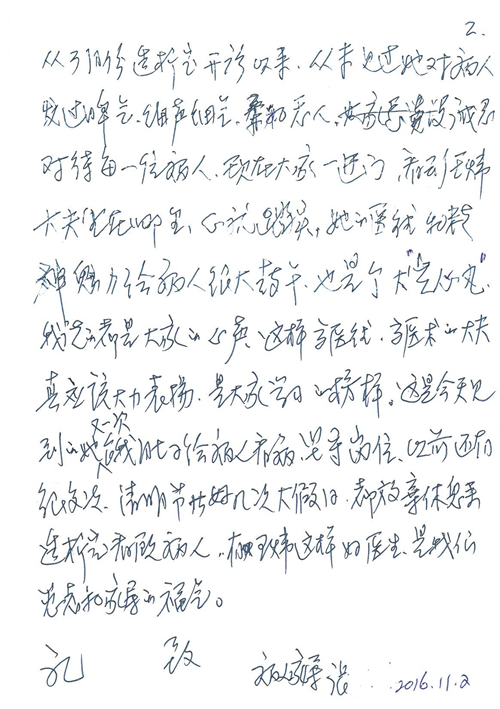 2.
从3月份透析室开诊以来,从未见过她对病人
发过脾气,细声细气,柔和忍人,诚恳
对待每一位病人,现在大家一进门,看到任炜
大夫坐在哪里,心就踏实,她的医德和精
神魅力给病人很大鼓午,也是个大"定心丸",
我说的都是大家的心声,这样高医德、高医术的大夫
真应该大力表扬,是大家学习的榜样。这是今天见
到的她又一次带给病人看病,坚守岗位,以前还有
很多次,清明节廿好几次大假日,都放弃休息来
透析室看顾病人,有任炜这样的医生,是我们
患者和家属的福气。
礼 致
病人家属 2016.11.2